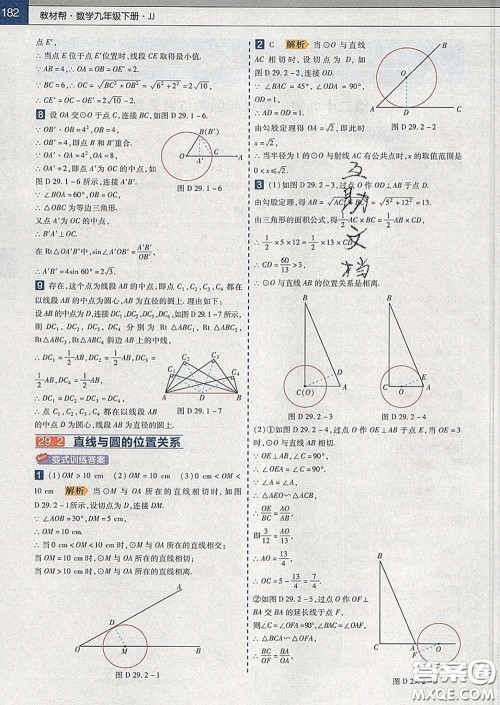 182 教材帮·数学九年级下册·JJ
点 E′,
∴ 当点 E 位于点 E′位置时,线段 CE 取得最小值.
∵ AB=4,∴ OA=OB=OE′=2.
∵ BC=6,∴ OC=√(BC²+OB²)=√(6²+2²)=2√10,
∴ CE′=OC-OE′=2√10-2.
8 设 OA 交⊙O 于点 C,连接 BC,如图 D 29.1-6.
∵ OB′·OB=4²,OB=4,
∴ OB′=4,即点 B 和 B′重合.
∵ OA′·OA=4²,OA=8,
∴ OA′=2,即点 A′为 OC 的中点,如
图 D 29.1-6 所示,连接 A′B′.
∵ ∠BOA=60°,OB=OC,
∴ △OBC 为等边三角形.
又点 A′为 OC 的中点,
∴ B′A′⊥OC.
在 Rt△OA′B′中,sin∠A′OB′=A′B′/OB′,
∴ A′B′=4sin 60°=2√3.
B(B′)
O A′ C A
图 D 29.1-6
9 存在,这个点为线段 AB 的中点,即点 C₁,C₂,C₃,C₄ 都
在以线段 AB 的中点为圆心,AB 为直径的圆上. 理由如下:
设点 D 为线段 AB 的中点,连接 DC₁,DC₂,DC₃,如图 D 29.1-7 所示,则
DC₁,DC₂,DC₃ 分别为 Rt△ABC₁,Rt△
ABC₂,Rt△ABC₃ 斜边 AB 上的中线.
∴ DC₁=1/2AB,DC₂=1/2AB,DC₃=
1/2AB,
∵ DC₄=1/2AB,
∴ DC₁=DC₂=DC₃=DC₄=1/2AB,
∴ 点 C₁,C₂,C₃,C₄ 都在以线段 AB
的中点 D 为圆心,AB 为直径的圆上.
C₁ C₂ C₃ C₄
A D B
图 D 29.1-7
29.2 直线与圆的位置关系
变式训练答案
1 (1)OM>10 cm (2)OM=10 cm (3)0 cm<OM<
10 cm 解析 当⊙M 与 OA 所在的直线相切时,如图
D 29.2-1 所示,设切点为 D,连接 DM.
∵ ∠AOB=30°,DM=5 cm,
∴ OM=10 cm.
∴ 当 0 cm<OM<10 cm 时,⊙M 与 OA 所在的直线相交;
当 OM=10 cm 时,⊙M 与 OA 所在的直线相切;
当 OM>10 cm 时,⊙M 与 OA 所在的直线相离.
A
D
O M B
图 D 29.2-1
2 C 解析 当⊙O 与直线
AC 相切时,设切点为 D,如
图 D 29.2-2,连接 OD.
∵ ∠BAC=45°,∠ODA=90°,
OD=1,
∴ AD=OD=1.
由勾股定理得 OA=√2,即此时
x=√2.
B
O
A D C
图 D 29.2-2
∴ 当半径为 1 的⊙O 与射线 AC 有公共点时,x 的取值范围是
0<x≤√2.
3 (1)如图 D 29.2-3,过点 O 作 OD⊥AB 于点 D.
由勾股定理,得 AB=√(AC²+BC²)=√(5²+12²)=13.
由三角形的面积公式,得 1/2AC×BC=1/2AB×CD,
∴ 1/2×5×12=1/2×13×CD,
∴ CD=60/13>3,
∴ ⊙O 与直线 AB 的位置关系是相离.
互助文档
B
D
C(O) A
图 D 29.2-3
B
E
C O A
图 D 29.2-4
(2)①如图 D 29.2-4,过点 O 作 OE⊥AB 于点 E.
∵ OE⊥AB,AC⊥BC,
∴ ∠AEO=∠C=90°.
∵ ∠A=∠A,
∴ △AEO∽△ACB,
∴ OE/BC=AO/AB,
即 3/12=AO/13,
∴ AO=13/4,
∴ OC=5-13/4=7/4.
②如图 D 29.2-5,过点 O 作 OF⊥
BA 交 BA 的延长线于点 F,
则∠C=∠OFA,∠BAC=∠OAF,
∴ △BCA∽△OFA,
∴ BC/OF=BA/OA,
B
C A O
F
图 D 29.2-5
答案圈
MXQE.COM